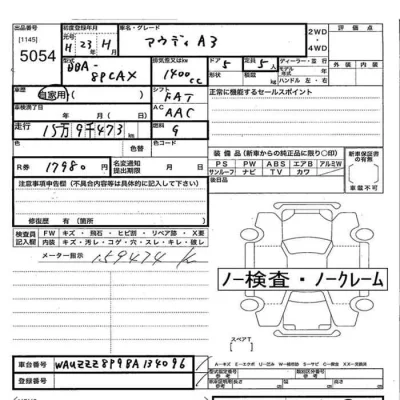 出品番号
[1145]
5054
初度登録年月
H 23 H 月
車名・グレード
アウディ A3
2WD
・
4WD
評価点
外装 内装
型式
DBA-
8PCAX
排気量又は積
1400cc
ドア
5
形状
定員
5人
積載
kg
ディーラー・並行
モデル
年
ハンドル 左・右
車歴
自家用
シフト
FAT
車検満了日
年 月( 日)
AC
AAC
走行
15万9千473km
燃料
G
色
色替
色コード
正常に機能するセールスポイント
R券
17980円
名変通知
提出期限
月 日
装備品(新車からの純正品に限り〇印)
PS PW ABS エアB アルミW
サンルーフ ナビ TV カワ
後日品
新車保証書の有無
車載不可
注意事項申告欄(不具合内容等は具体的に記入して下さい)
修復歴 有(箇所 )
検査員
記入欄
FW キズ・飛石・ヒビ割・リペア多・X要
内装 キズ・汚レ・コゲ・穴・スレ・キレ・破レ
メーター指示
159474 k
ノー検査・ノークレーム
スペアT
車台番号
WAUZZZ8P9BA134096
登録番号